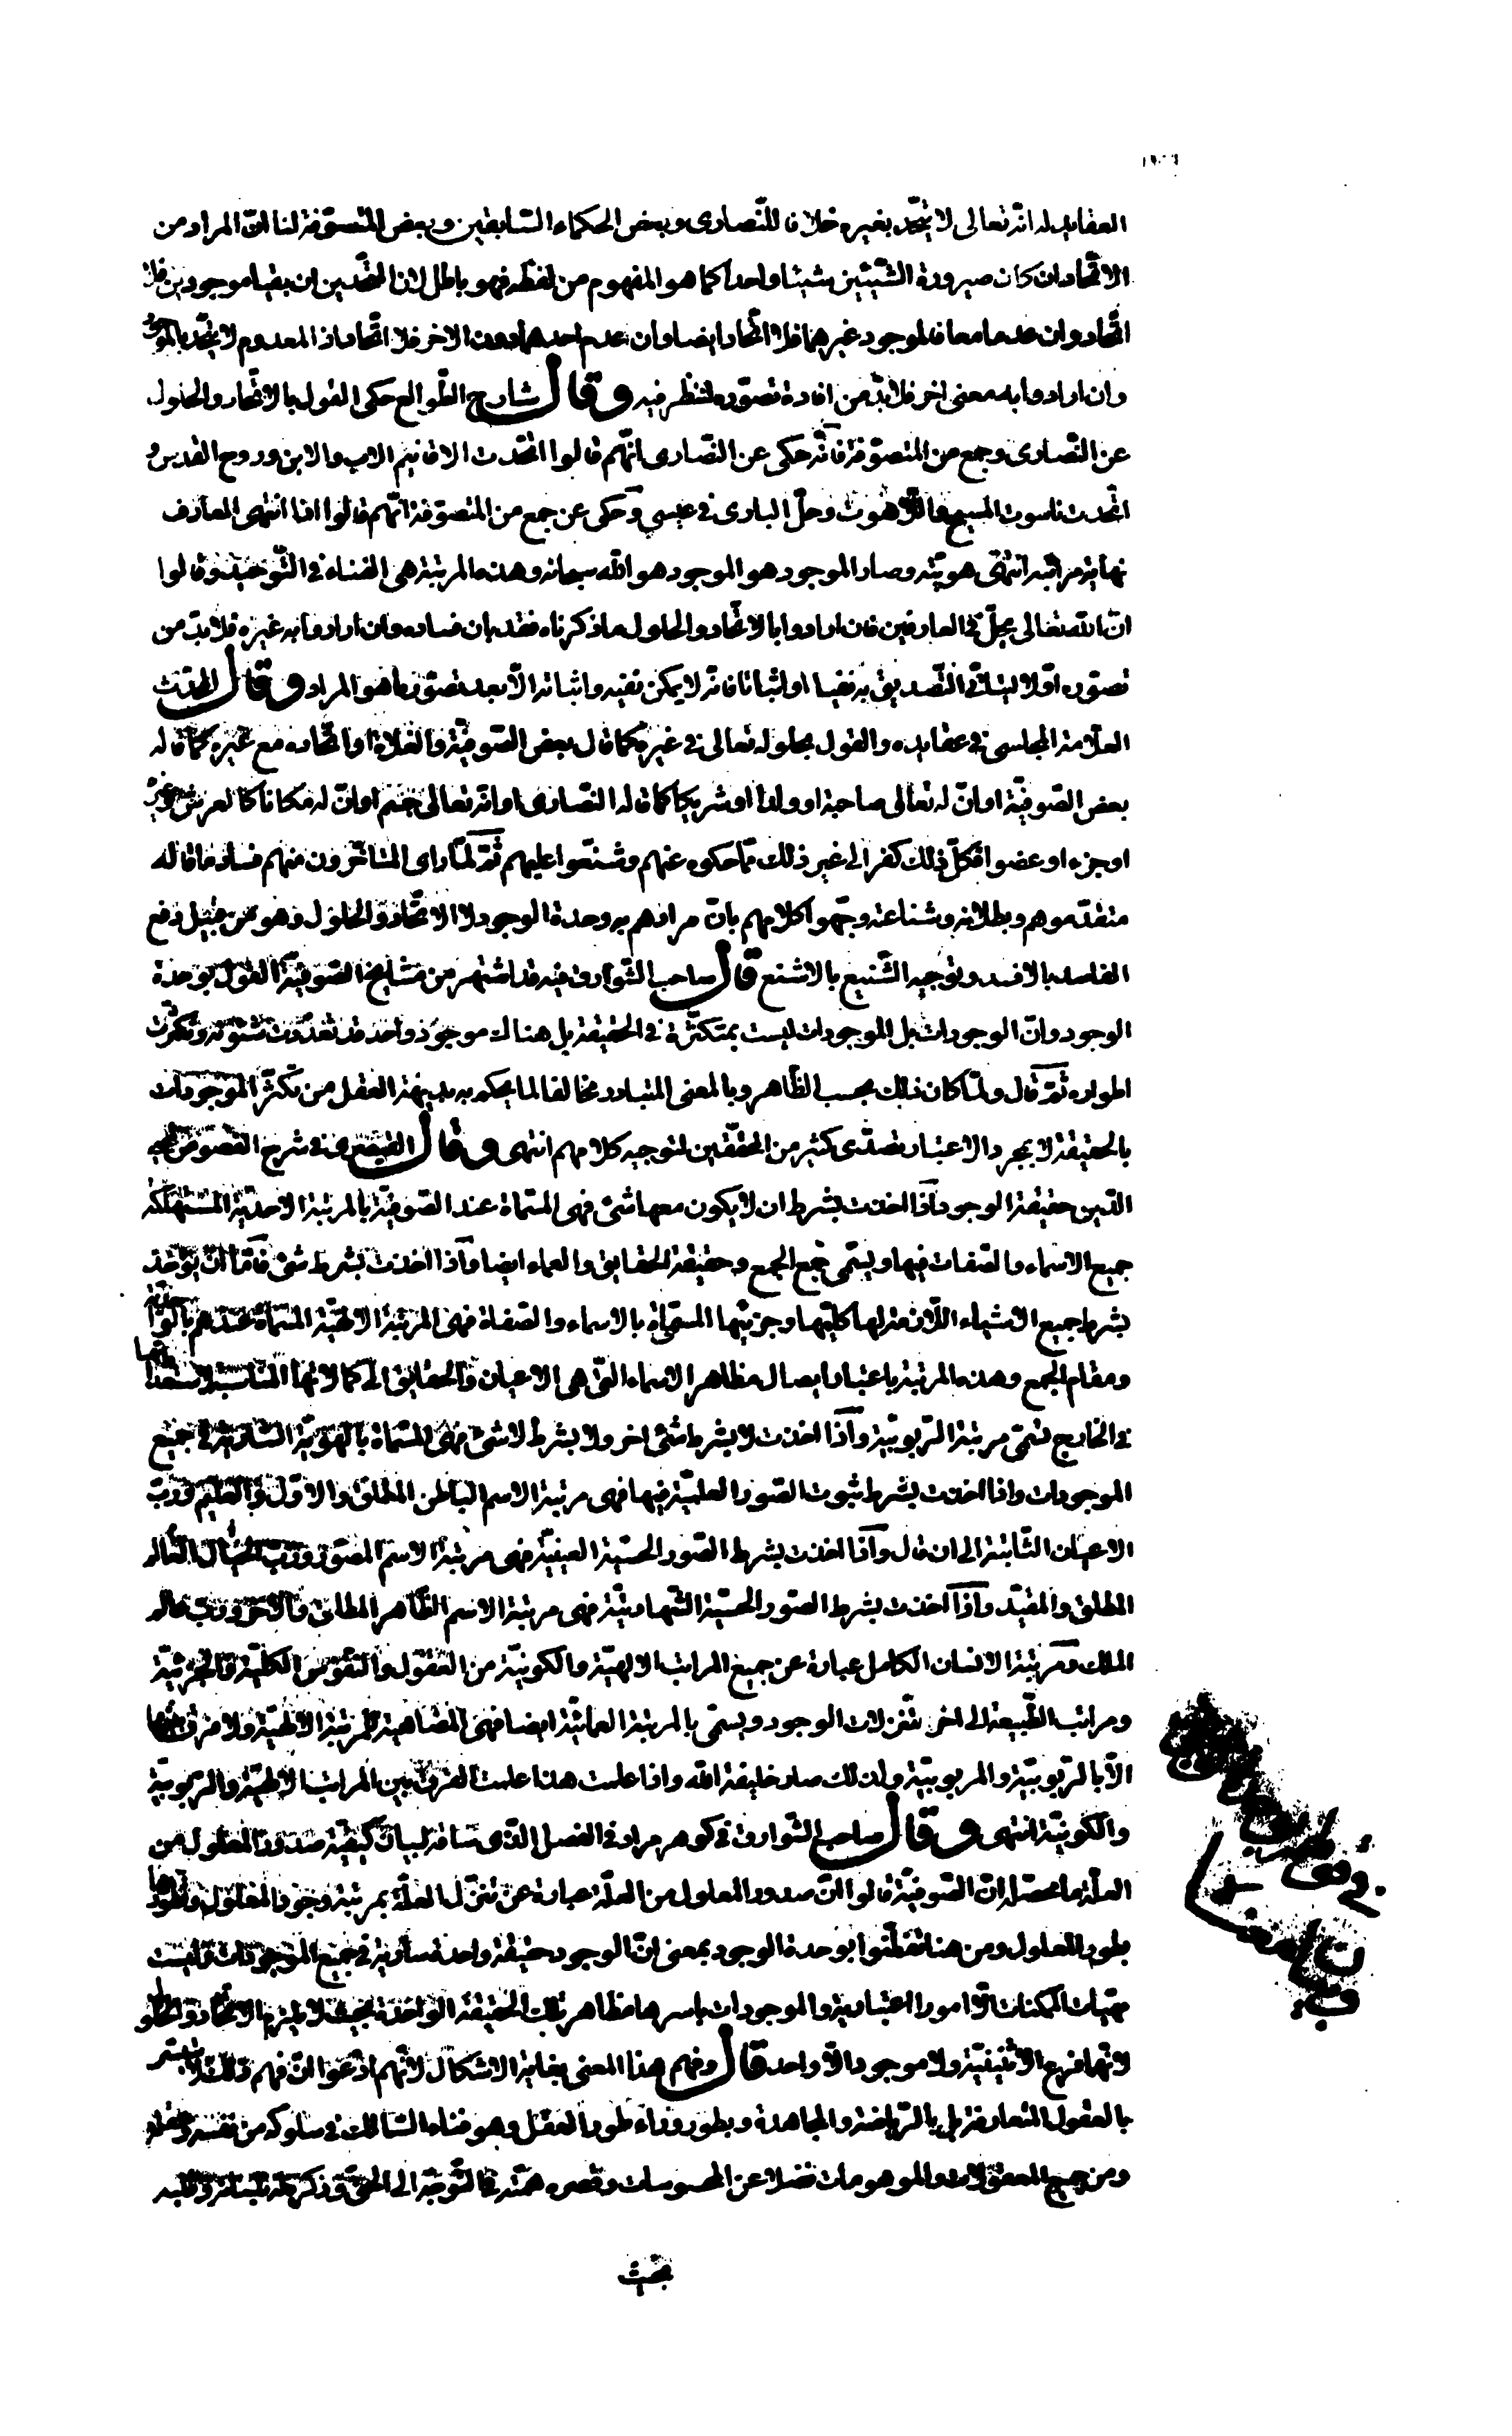 العقايد له انّه تعالى لا يتّحد بغيره خلافا للنّصارى وبعض الحكماء السّابقين وبعض المتصوّفة لنا انّ المراد من
الاتّحاد ان كان صيرورة الشّيئين شيئا واحدا كما هو المفهوم من لفظه فهو باطل لانّ المتّحدين ان بقيا موجودين فلا
اتّحاد وان عدما معا فالموجود غيرهما فلا اتّحاد ايضا وان عدم احدهما دون الاخر فلا اتّحاد اذ المعدوم لا يتّحد بالموجود
وان ارادوا به معنى اخر فلا بدّ من افادة تصوّره لننظر فيه وقال شارح الطّوالع حكى القول بالاتّحاد والحلول
عن النّصارى وجمع من المتصوّفة فانّه حكى عن النّصارى انّهم قالوا اتّحدت الاقانيم الاب والابن وروح القدس و
اتّحدت ناسوت المسيح باللّاهوت وحلّ البارى فى عيسى وحكى عن جمع من المتصوّفة انّهم قالوا اذا انتهى العارف
نهاية مراتبه انتفى هويّته وصار الموجود هو الموجود هو الله سبحانه وهذه المرتبة هى الفناء فى التّوحيد وقالوا
انّ الله تعالى يحلّ فى العارفين فان ارادوا بالاتّحاد والحلول ما ذكرناه فقد بان فساده وان ارادوا به غيره فلا بدّ من
تصوّره اوّلا ليتاتّى التّصديق به نفيا او اثباتا فانّه لا يمكن نفيه واثباته الّا بعد تصوّر ما هو المراد وقال المحدّث
العلّامة المجلسى فى عقايده والقول بحلوله تعالى فى غيره كما قال بعض الصّوفيّة والغلاة او اتّحاده مع غيره كما قاله
بعض الصّوفيّة او انّ له تعالى صاحبة او ولدا او شريكا كما قاله النّصارى او انّه تعالى جسم او انّ له مكانا كالعرش وغيره
او جزء او عضوا فكلّ ذلك كفر الى غير ذلك ممّا حكوه عنهم وشنّعوا عليهم ثمّ لمّا راى المتاخّرون منهم فساد ما قاله
متقدّموهم وبطلانه وشناعته وجّهوا كلامهم بانّ مرادهم به وحدة الوجود لا الاتّحاد والحلول وهو من قبيل دفع
الفاسد بالافسد وتوجيه الشّنيع بالاشنع قال صاحب الشّوارق فيه قد اشتهر من مشايخ الصّوفيّة القول بوحدة
الوجود وانّ الوجودات بل الموجودات ليست بمتكثّرة فى الحقيقة بل هناك موجود واحد قد تعدّدت شئونه وتكثّرت
اطواره ثمّ قال ولمّا كان ذلك بحسب الظّاهر وبالمعنى المتبادر مخالفا لما يحكم به بديهة العقل من تكثّر الموجودات
بالحقيقة لا بمجرد الاعتبار تصدّى كثير من المحقّقين لتوجيه كلامهم انتهى وقال القيصرى فى شرح الفصوص محيى
الدّين حقيقة الوجود اذا اخذت بشرط ان لا يكون معها شئ فهى المسمّاة عند الصّوفيّة بالمرتبة الاحديّة المستهلكة
جميع الاسماء والصّفات فيها ويسمّى جمع الجمع وحقيقة الحقايق والعماء ايضا واذا اخذت بشرط شئ فامّا ان يؤخذ
بشرط جميع الاشياء اللّازمة لها كلّيّها وجزئيّها المسمّاة بالاسماء والصّفاة فهى المرتبة الالهيّة المسمّاة عندهم بالواحديّة
ومقام الجمع وهذه المرتبة باعتبار ايصال مظاهر الاسماء الّتى هى الاعيان والحقايق الى كمالاتها المناسبة لاستعداداتها
فى الخارج تسمّى مرتبة الرّبوبيّة واذا اخذت لا بشرط شئ اخر ولا بشرط لا شئ فهى المسمّاة بالهويّة السّارية فى جميع
الموجودات واذا اخذت بشرط ثبوت الصّور العلميّة فيها فهى مرتبة الاسم الباطن المطلق والاوّل والعليم وربّ
الاعيان الثّابتة الى ان قال واذا اخذت بشرط الصّور الحسّيّة العينيّة فهى مرتبة الاسم المصوّر وربّ الخيال العالم
المطلق والمقيّد واذا اخذت بشرط الصّور الحسّيّة الشّهاديّة فهى مرتبة الاسم الظّاهر المطلق والاخر وربّ عالم
الملك ومرتبة الانسان الكامل عبارة عن جميع المراتب الالهيّة والكونيّة من العقول والنّفوس الكلّيّة والجزئيّة
ومراتب الطّبيعة الى اخر تنزّلات الوجود ويسمّى بالمرتبة العمائيّة ايضا فهى المضاهية للمرتبة الالهيّة ولا فرق بينهما
الّا بالرّبوبيّة والمربوبيّة ولذلك صار خليفة الله واذا علمت هذا علمت الفرق بين المراتب الالهيّة والرّبوبيّة
والكونيّة انتهى وقال صاحب الشّوارق فى كوهر مراد فى الفصل الّذى ساقه لبيان كيفيّة صدور المعلول من
العلّة ما محصّله انّ الصّوفيّة قالوا انّ صدور المعلول من العلّة عبارة عن تنزّل العلّة بمرتبة وجود المعلول وتطوّرها
بطور المعلول ومن هنا تفطّنوا بوحدة الوجود بمعنى انّ الوجود حقيقة واحدة سارية فى جميع الموجودات وليست
مهيّات الممكنات الّا امورا اعتبارية والموجودات باسرها مظاهر تلك الحقيقة الواحدة بحيث لا يلزم الاتّحاد والحلول
لانّهما فرع الاثنينيّة ولا موجود الّا واحد قال وفهم هذا المعنى بغاية الاشكال لانّهم ادّعوا انّ فهم ذلك لا يتيسّر
بالعقول المتعارفة بل بالرّياضة والمجاهدة وبطور وراء طور العقل وهو فناء السّالك فى سلوكه من نفسه وعقله
ومن جميع المعقولات والموهومات فضلا عن المحسوسات وقصره همّته فى التّوجّه الى الحقّ وذكره له بلسانه وقلبه
بحيث